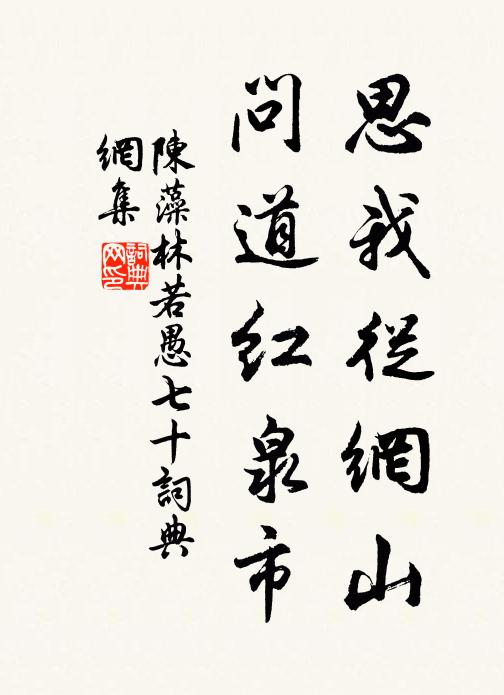 思我從網山
問道紅泉市
陳藻林若愚七十詞典
網集
詞典
网印